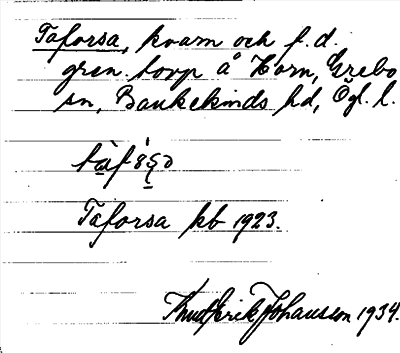 Taforsa, kvarn och f.d.
gren. torp å Horn, Grebo
sn, Bankekinds hd, Ög. l.
Taforsa kb 1923.
Knut Erik Johansson 1934.